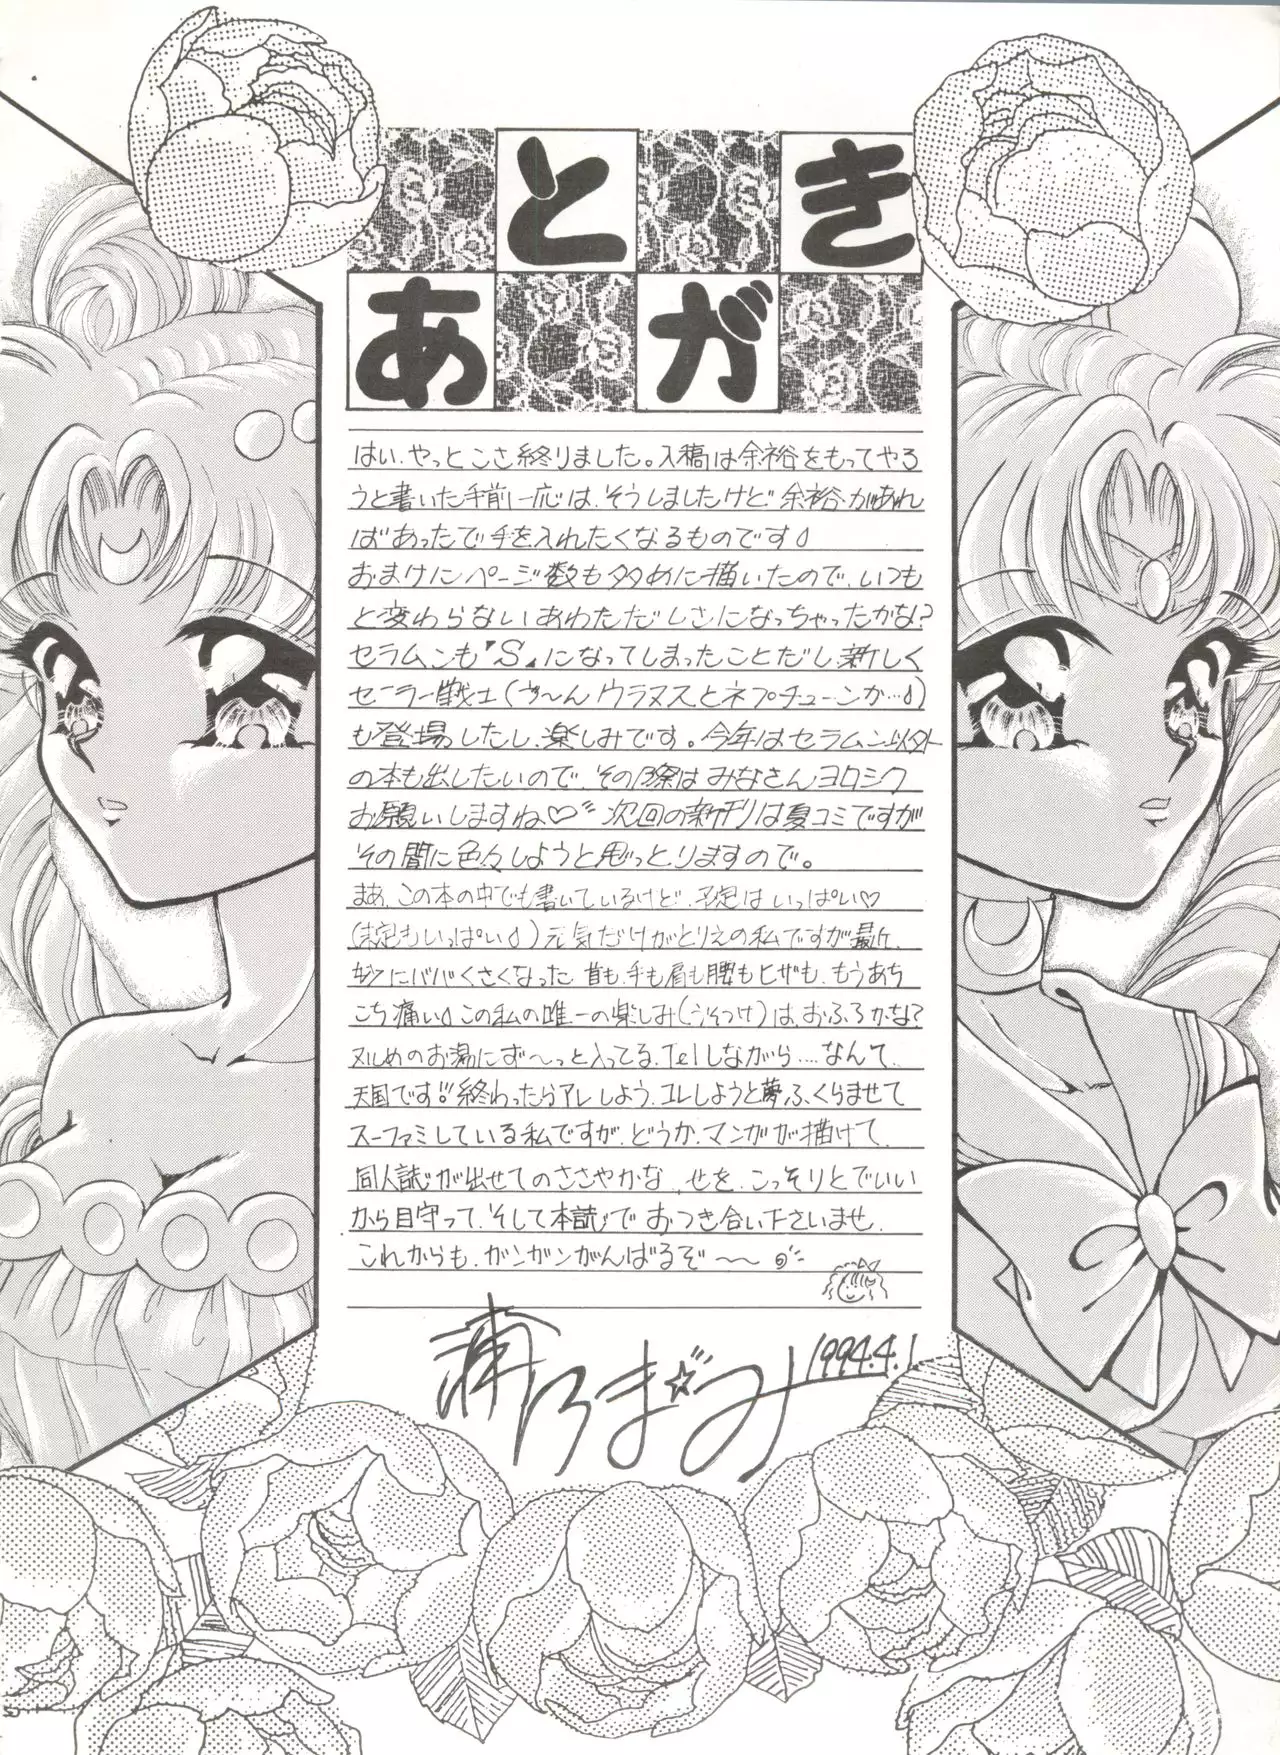 あとがき
はい、やっとこさ終りました。入稿は余裕をもってやろ
うと書いた手前一応は、そうしましたけど余裕があれ
ばあったで手を入れたくなるものです♪
おまけにページ数も多めに描いたので、いつも
と変わらないあわただしさになっちゃったかな?
セラムンも『S』になってしまったことだし、新しく
セーラー戦士(う〜んウラヌスとネプチューンか…♪)
も登場したし、楽しみです。今年はセラムン以外
の本も出したいので、その際はみなさんヨロシク
お願いしますね♡ 次回の新刊は夏コミですが
その間に色々しようと思っとりますので。
まあ、この本の中でも書いているけど、予定はいっぱい♡
(未定もいっぱい♪)元気だけがとりえの私ですが最近、
妙にババくさくなった 首も、手も肩も腰もヒザも、もうあち
こち痛い♪この私の唯一の楽しみ(うそつけ)は、おふろかな?
ヌルめのお湯にず〜っと入ってる、Telしながら‥‥なんて、
天国です!!終わったらアレしよう、コレしようと夢ふくらませて
スーファミしている私ですが、どうか、マンガが描けて、
同人誌が出せてのささやかな、しを、こっそりとでいい
から目守って、そして本誌でおつき合い下さいませ、
これからも、ガンガンがんばるぞ〜〜
1994.4.1